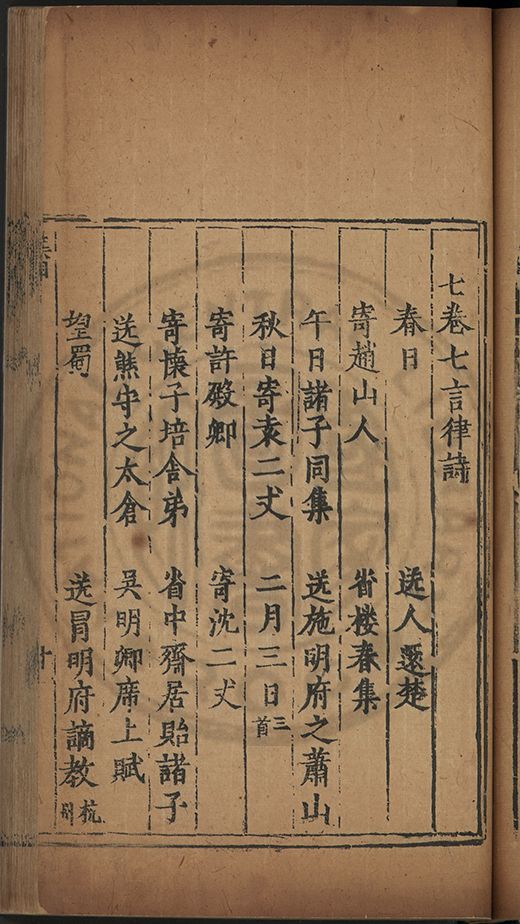 七卷七言律詩
春日 送人還楚
寄趙山人 省樓春集
午日諸子同集 送施明府之蕭山
秋日寄袁二丈 二月三日三首
寄許殿卿 寄沈二丈
寄懷子培舍弟 省中齋居貽諸子
送熊守之太倉 吳明卿席上賦
望蜀 送冒明府謫教杭州
十